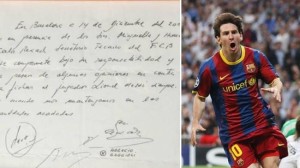 En Barcelona a 14 de diciembre del 2000
en presencia de los Srs Minguella y Horacio
Carles Rexach Secretario Técnico del F.C.B
se compromete bajo su responsabilidad y
a pesar de algunas opiniones en contra
a fichar al jugador Lionel Messi siempre
cuando nos mantengamos en las
cantidades acordadas
HORACIO
unicef
10